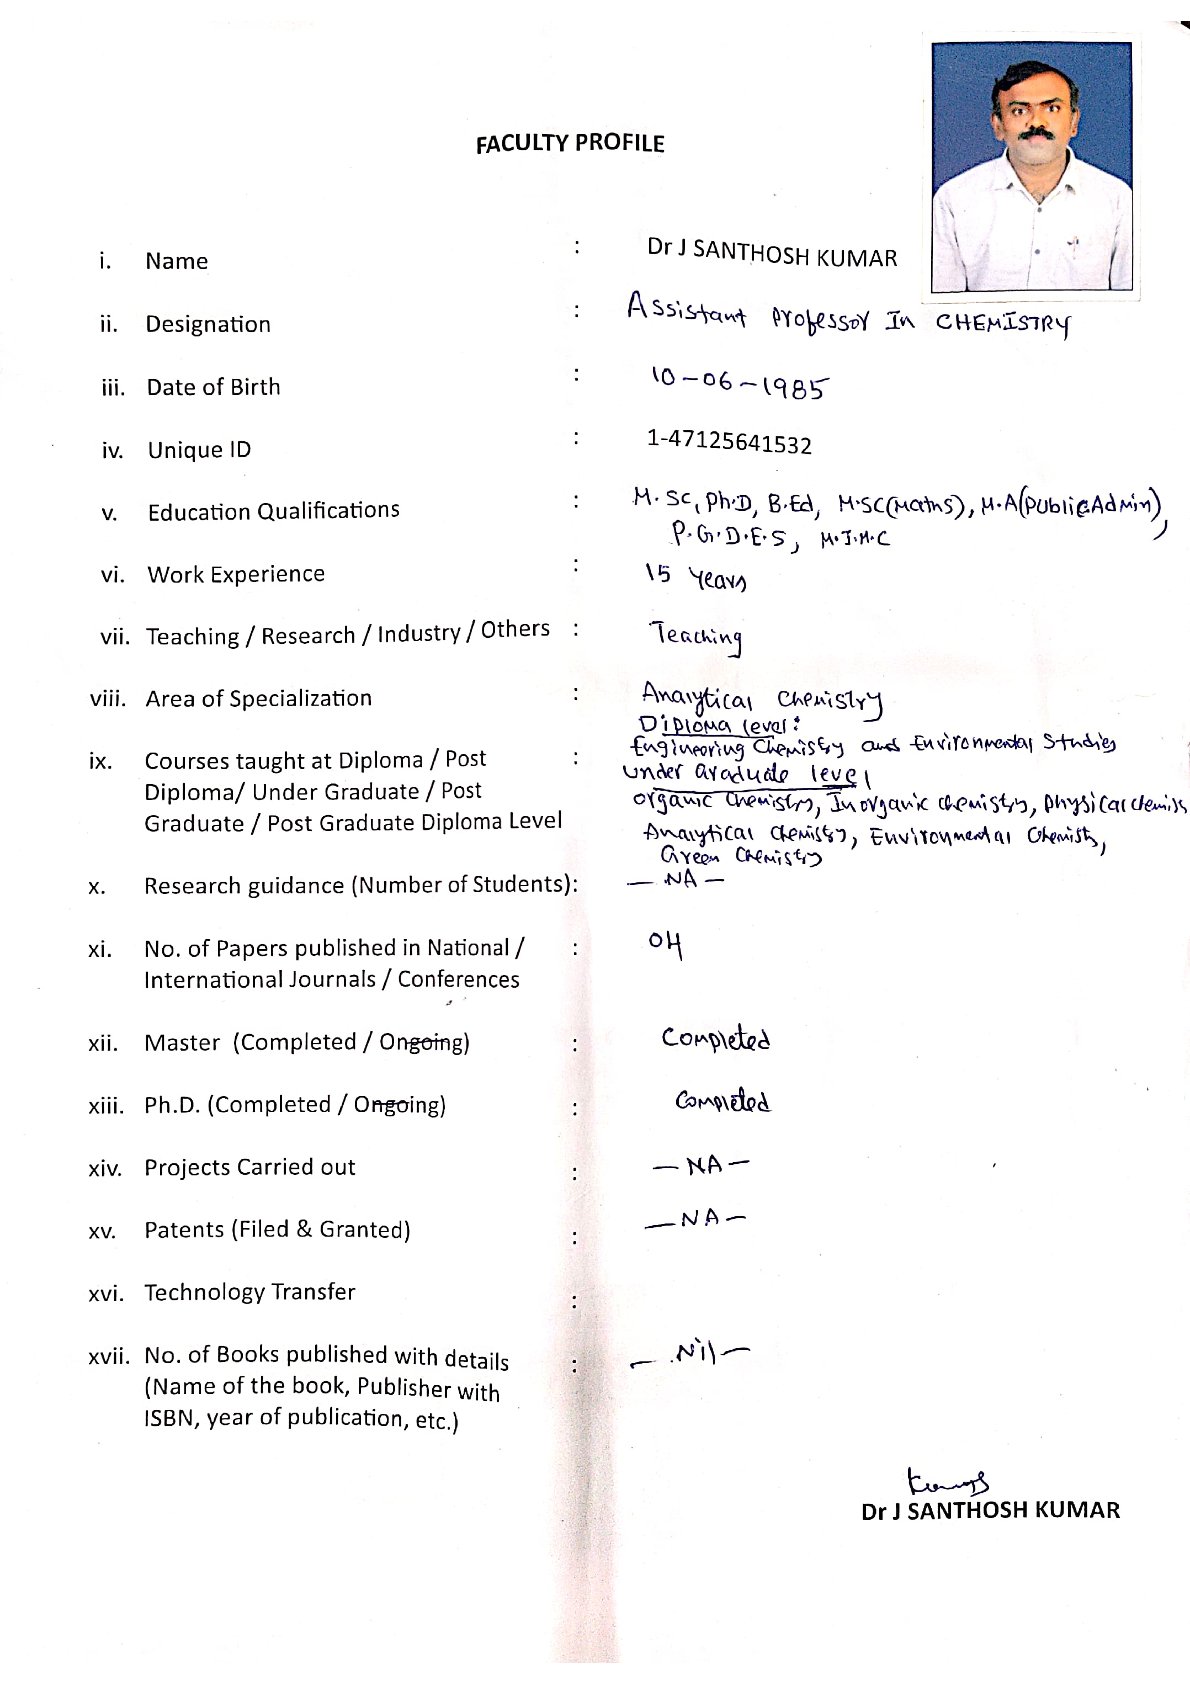 FACULTY PROFILE
i. Name : Dr J SANTHOSH KUMAR
ii. Designation : Assistant Professor In CHEMISTRY
iii. Date of Birth : 10-06-1985
iv. Unique ID : 1-47125641532
v. Education Qualifications : M.Sc, Ph.D, B.Ed, M.SC(Maths), M.A(Public Admin),
P.G.D.E.S, M.J.M.C
vi. Work Experience : 15 Years
vii. Teaching / Research / Industry / Others : Teaching
viii. Area of Specialization : Analytical Chemistry
Diploma level:
Engineering Chemistry and Environmental Studies
ix. Courses taught at Diploma / Post :
Under Graduate level
Diploma/ Under Graduate / Post
Organic Chemistry, Inorganic chemistry, Physical chemis
Graduate / Post Graduate Diploma Level
Analytical Chemistry, Environmental Chemistry,
Green Chemistry
x. Research guidance (Number of Students): — NA —
xi. No. of Papers published in National / : 04
International Journals / Conferences
xii. Master (Completed / Ongoing) : Completed
xiii. Ph.D. (Completed / Ongoing) : Completed
xiv. Projects Carried out : — NA —
xv. Patents (Filed & Granted) : — NA —
xvi. Technology Transfer :
xvii. No. of Books published with details : — Nil —
(Name of the book, Publisher with
ISBN, year of publication, etc.)
Dr J SANTHOSH KUMAR